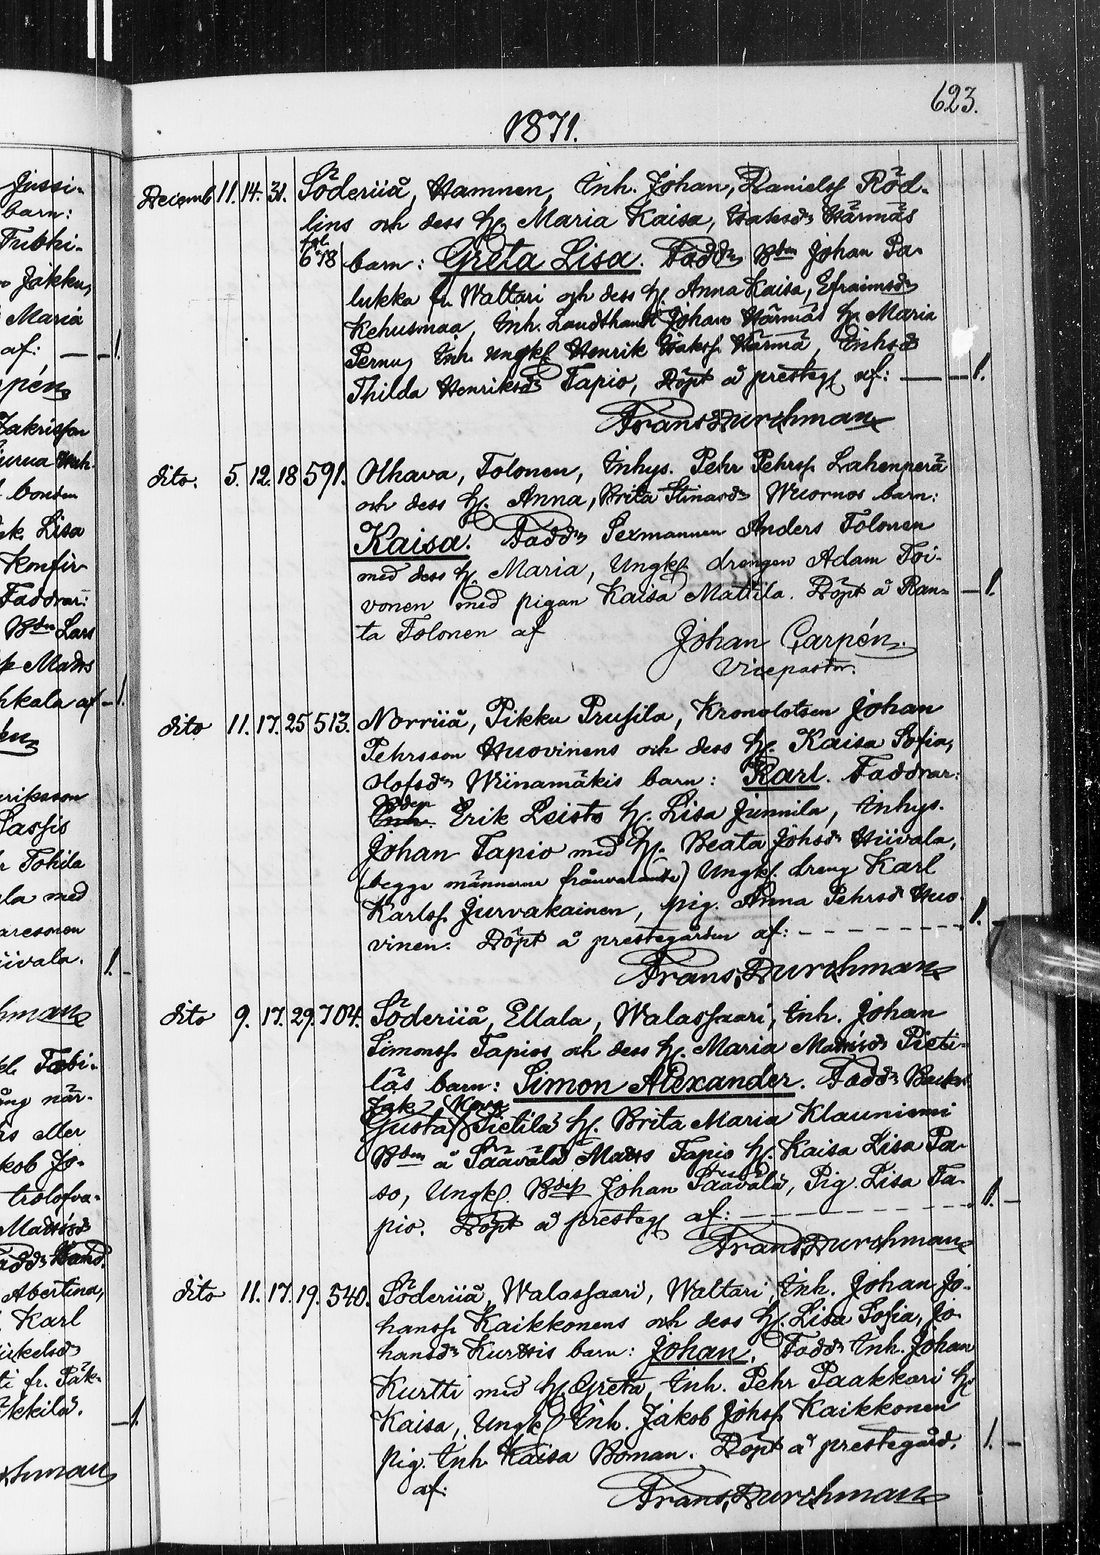 623.
1871.
Jussi-
barn:
Jakku,
Maria
af: — 1.
Lisa
Konfir-
Faddrar:
Bdn Lars
Mats
hkala af — 1.
eriksson
Lassis
Tohila
la med
aresonen
iivala. 1.
hman
Tobi-
ång när-
rs eller
kob Jo-
Abertina,
Karl
ti fr. Päk-
kkilä. — 1.
hman
Decemb 11. 14. 31. Söderiiå, Hamnen, Inh. Johan, Daniels Röd-
lins och dess h. Maria Kaisa, Isaksdr Härmäs
fol. 678 barn: Greta Lisa. Faddr Bdn Johan Pa-
lukka fr. Waltari och dess h. Anna Kaisa, Efraimsdr
Kehusmaa, Inh. Landthandl Johan Härmäs h. Maria
Pernu, Inh. Ungk. Henrik Isaks. Härmä, Inhsdr
Thilda Henriksdr Tapio, Döpt å presteg. af: — 1.
Frans Durchman
dito. 5. 12. 18 591. Olhava, Tolonen, Inhys. Pehr Pehrs. Lahenperä
och dess h. Anna, Brita Stinasdr Wuornos barn:
Kaisa. Faddr Sexmannen Anders Tolonen
med dess h. Maria, Ungk. drengen Adam Toi-
vonen med pigan Kaisa Mattila. Döpt å Ran- — 1.
ta Tolonen af
Johan Carpén.
Vicepastor.
dito 11. 17. 25 513. Norriiå, Pikku Prusila, Kronolotsen Johan
Pehrsson Huovinens och dess h. Kaisa Sofia,
Olofsdr Wiinamäkis barn: Karl. Faddrar:
Erik Leisto h. Lisa Junnila, Inhys.
Johan Tapio med h. Beata Johsdr Hiivala,
(begge männerne frånvarande) Ungk. dreng Karl
Karls. Jurvakainen, pig. Anna Pehrsdr Huo-
vinen. Döpt å prestegården af: - - - 1.
Frans Durchman
dito 9. 17. 29. 704. Söderiiå, Ellala, Walassaari, Inh. Johan
Simons. Tapios och dess h. Maria Matsdr Pieti-
läs barn: Simon Alexander. Faddr
Gustaf Pietilä h. Brita Maria Klauniemi
Bdn å Säävälä Mats Tapio h. Kaisa Lisa Pa-
so, Ungk. Bds. Johan Säävälä, Pig. Lisa Ta-
pio. Döpt å presteg. af: - - - 1. —
Frans Durchman
dito 11. 17. 19. 540. Söderiiå, Walassaari, Waltari, Inh. Johan Jo-
hans. Kaikkonens och dess h. Lisa Sofia, Jo-
hansdr Kurttis barn: Johan. Faddr Inh. Johan
Kurtti med h. Greta, Inh. Pehr Paakkari h.
Kaisa, Ungk. Inh. Jakob Johs. Kaikkonen
pig. Inh. Kaisa Boman. Döpt å prestegård. 1. —
af:
Frans Durchman